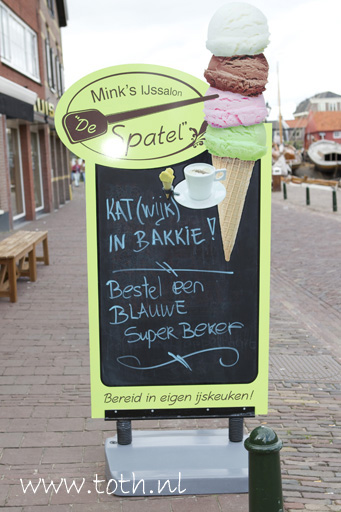 Mink's IJssalon
"De Spatel"
KAT(wijk)
IN BAKKIE!
Bestel een
BLAUWE
Super Beker
Bereid in eigen ijskeuken!
www.toth.nl